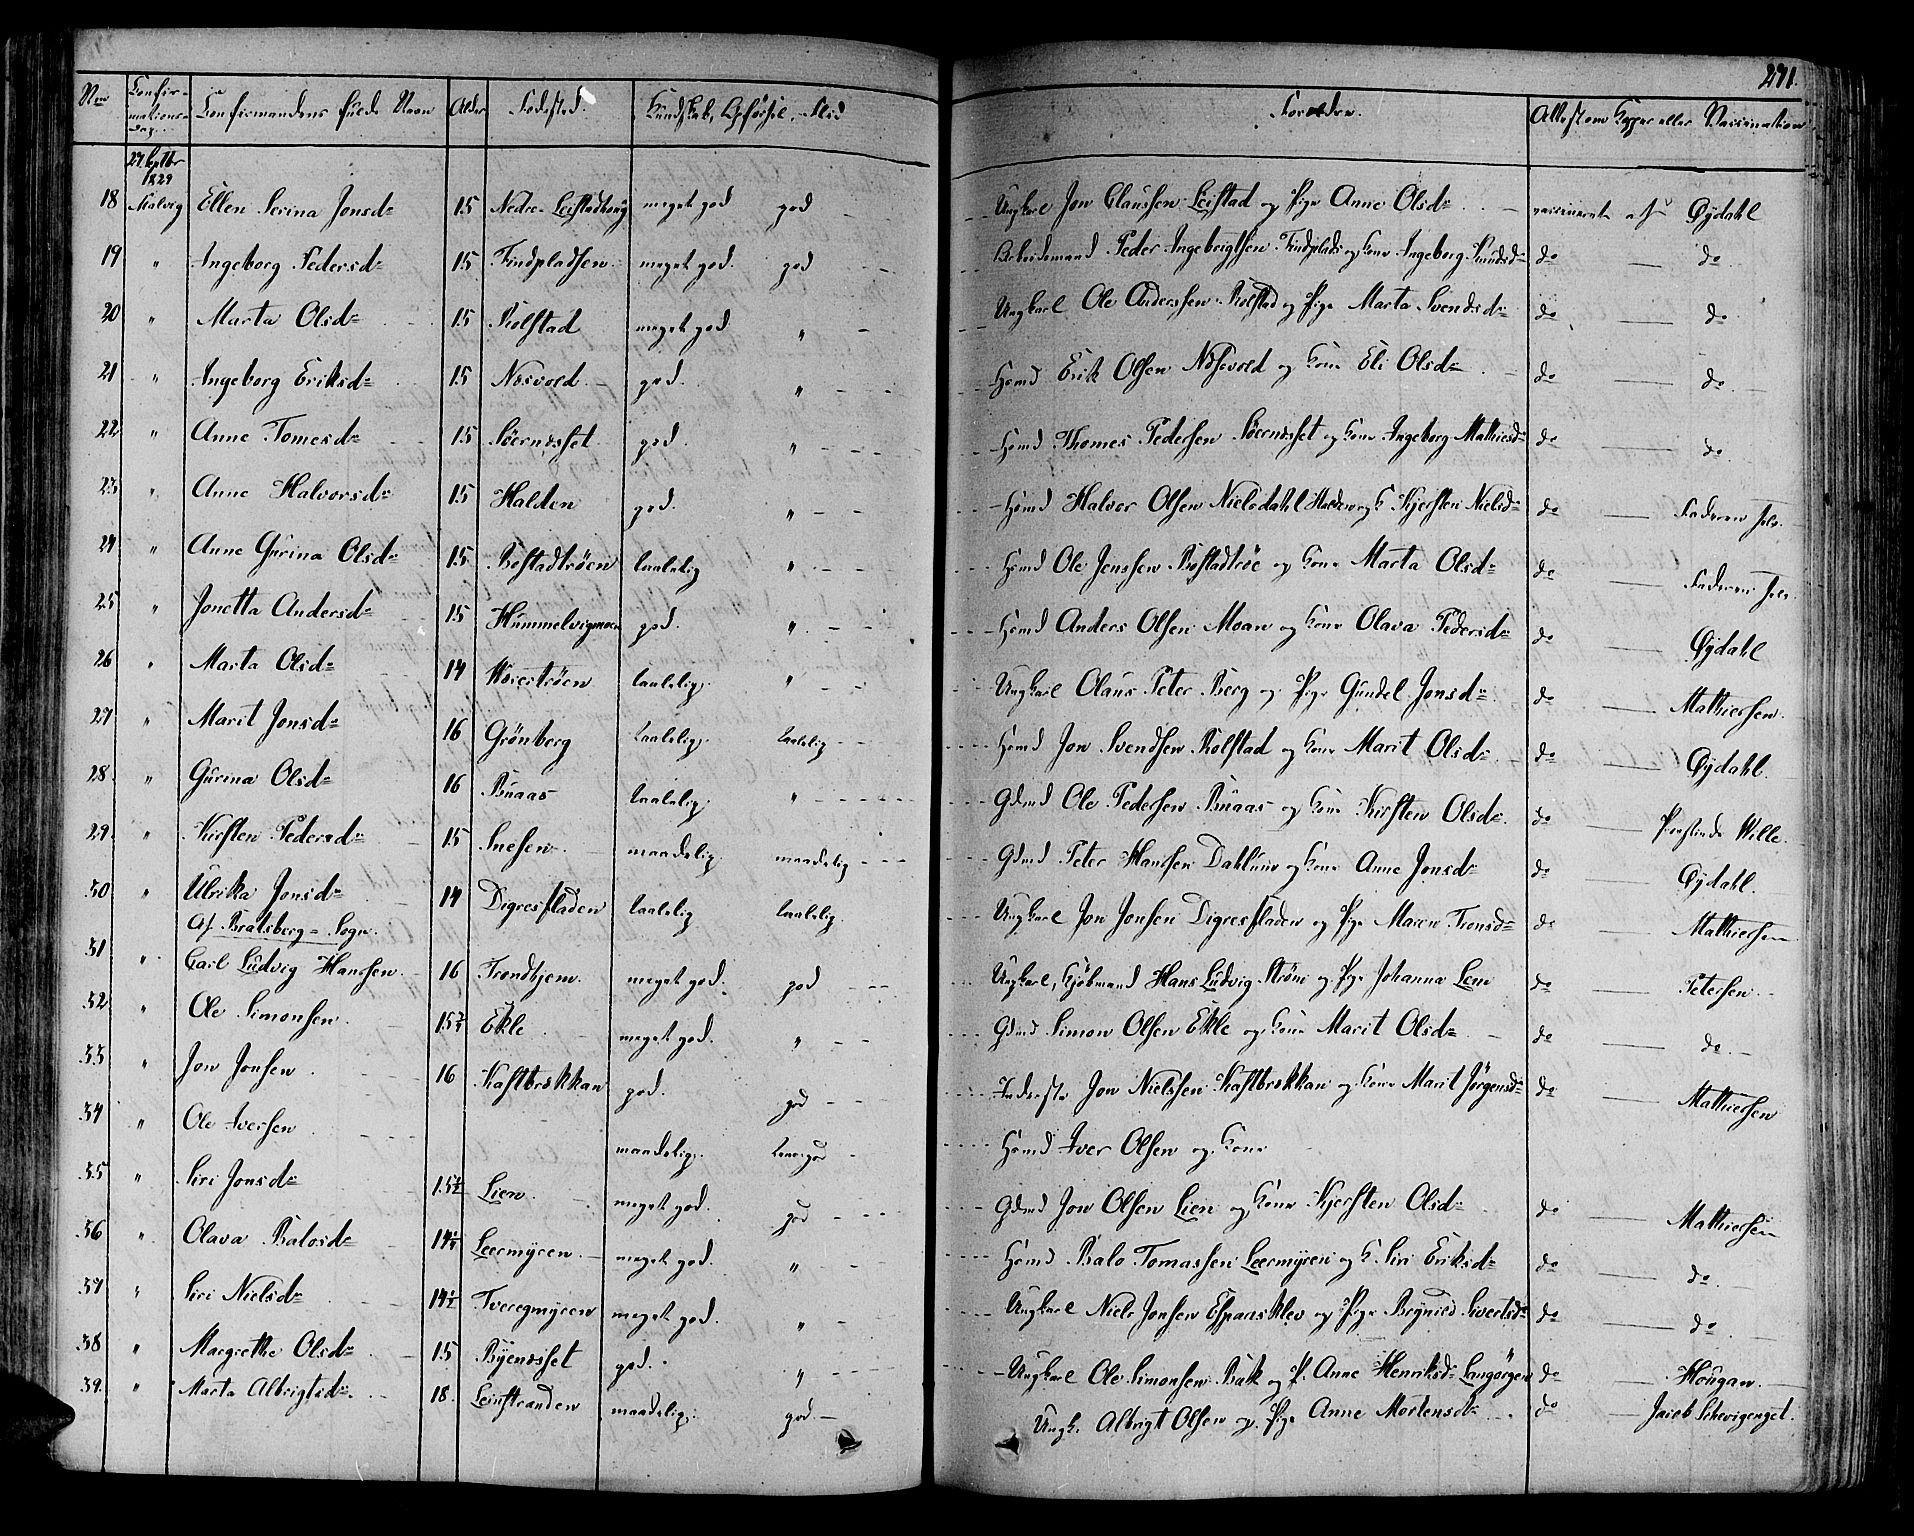 271.
Confirmandens fulde Navn Alder Fødested. Kundskab, Opførsel, Flid Forældre. Attest om Kopper eller Vaccination
27 Septbr 1829
18 Malvig Ellen Serina Jonsd 15 Nedre Leistad meget god god Ungkarl Jon Claussen Leistad og Pige Anne Olsd vaccineret af Øydahl
19 " Ingeborg Pedersd 15 Findpladsen meget god. god Arbeidsmand Peder Ingebrigtsen Findplads og Kone Ingeborg Knudsd do do
20 " Marta Olsd 15 Rolstad meget god " Ungkarl Ole Anderssen Rolstad og Pige Marta Svendsd do do
21 " Ingeborg Eriksd 15 Næsvold god. " Hsmd Erik Olsen Næsvold og Kone Eli Olsd do do
22 " Anne Tomesd 15 Søernesset god. " Hsmd Thomes Pedersen Søernesset og Kone Ingeborg Mathiesd do do
23 " Anne Halvorsd 15 Halden god. " Hsmd Halvor Olsen Nielsdahl Halden og K Kjersten Nielsd do
24 " Anne Gurina Olsd 15 Bostadtrøen taalelig " Hsmd Ole Jenssen Bostadtrøe og Kone Marta Olsd do
25 " Jonetta Andersd 15 Hummelvigmoen god. " Hsmd Anders Olsen Moan og Kone Olava Pedersd do Øydahl
26 " Marta Olsd 14 taalelig. " Ungkarl Olaus Peter Berg og Pige Gundel Jonsd do Mathiessen.
27 " Marit Jonsd 16 Grønberg taalelig. taalelig Hsmd Jon Svendsen Rolstad og Kone Marit Olsd do Øydahl.
28. " Gurina Olsd 16 Buaas taalelig. " Gdmd Ole Pedersen Buaas og Kone Kirsten Olsd. do Wille.
29. " Kirsten Pedersd 15 Snesen maadelig. maadelig Gdmd Peter Hanssen Dahlum og Kone Anne Jonsd do Øydahl.
30 " Ulrika Jonsd 14 Digresfladen taalelig taalelig. Ungkarl Jon Jonsen Digresfladen og Pige Maren Tronsd do Mathiessen
Af Bratsberg Sogn.
31 " Carl Ludvig Hanssen 16 Trondhjem. meget god. god Ungkarl, Kjøbmand Hans Ludvig Strøm og Pige Johanna Lem do Petersen.
32 " Ole Simonsen 15 Ekle meget god. " Gdmd Simon Olsen Ekle og Kone Marit Olsd do do.
33 " Jon Jonsen 16 Kastbrekkan god. god Inderste Jon Nielssen Kastbrekkan og Kone Marit Jørgensd do Mathiessen
34 " Ole Iversen maadelig. Hsmd Iver Olsen og Kone
35 " Siri Jonsd 15½ Lien meget god. god Gdmd Jon Olsen Lien og Kone Kjersten Olsd do Mathiessen
36 " Olava Balosd 14½ Leermyren meget god. " Hsmd Balo Tomassen Leermyren og K. Siri Eriksd do do.
37 " Siri Nielsd 14½ Tveregmyren meget god. " Ungkarl Niels Jonsen Espaasklev og Pige Brynild Sivertsd do do.
38 " Margrethe Olsd 15 Byenesset god. " Ungkarl Ole Simonsen Bak og P. Anne Henriksd Langørgen do Hougan.
39. " Marta Albrigtsd 18. Leinstranden maadelig. god Ungk. Albrigt Olsen og Pige Anne Mortensd do Jacob Schevigengel.